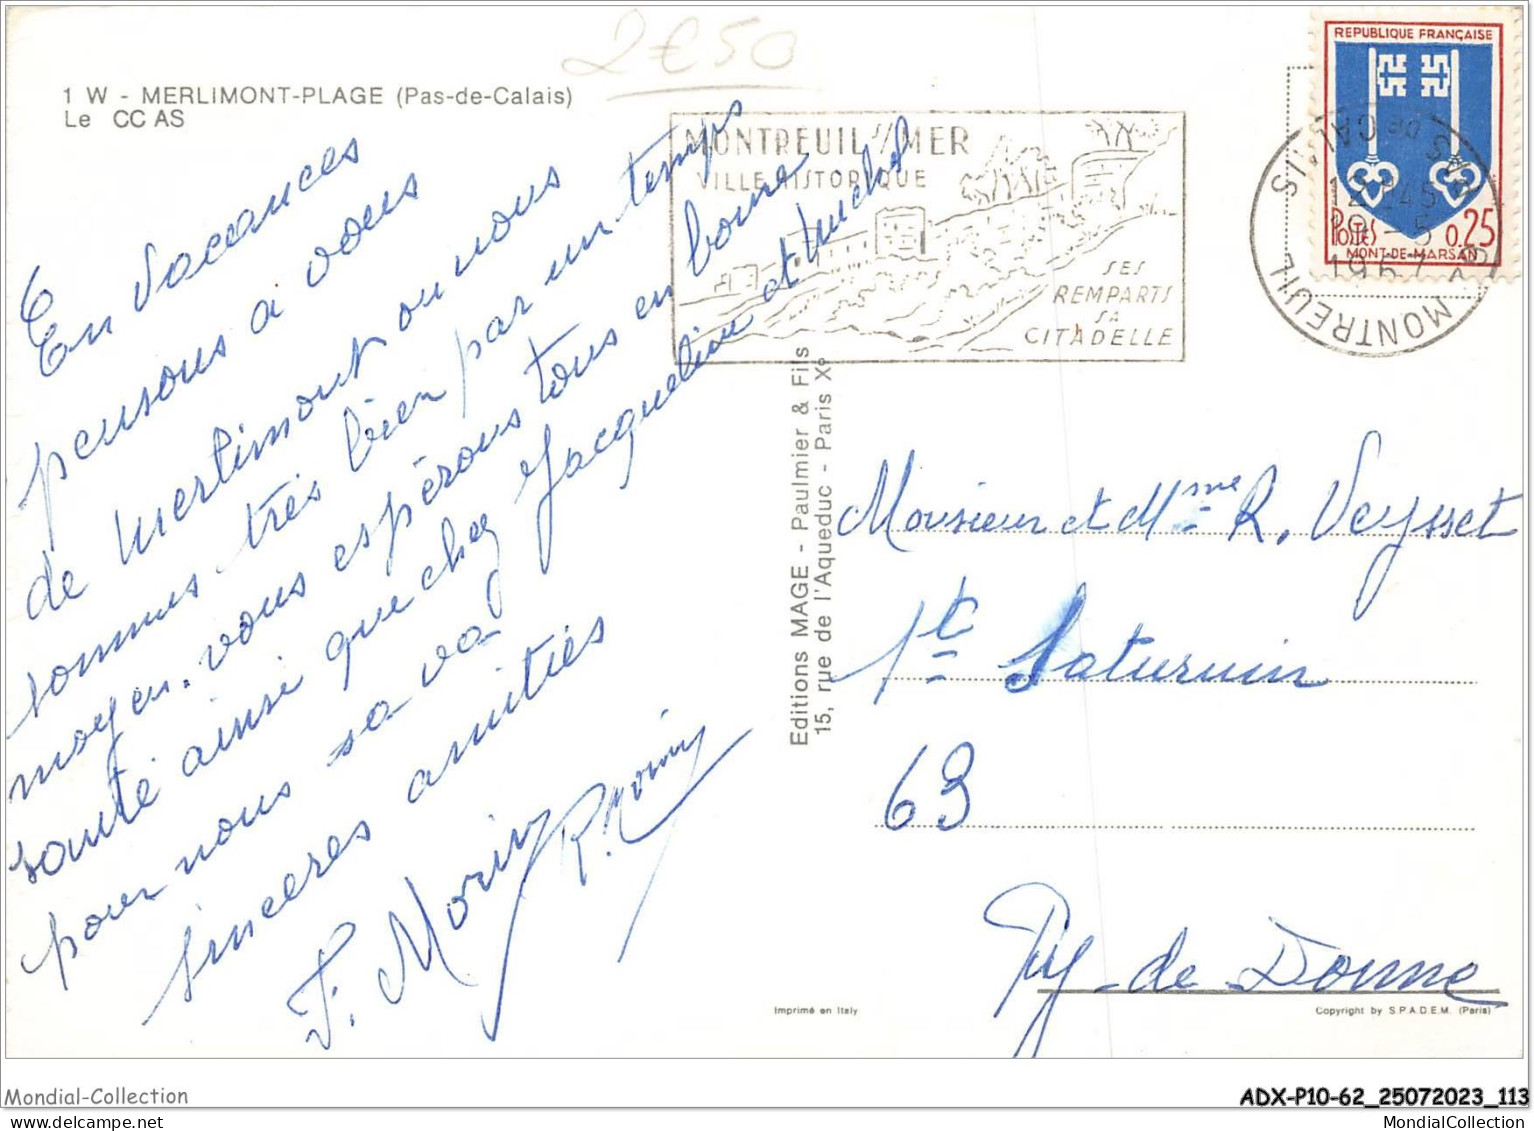 2€50
1 W - MERLIMONT-PLAGE (Pas-de-Calais)
Le CCAS
En vacances
pensons à vous
de Merlimont ou nous
sommes très bien par un temps
moyen. vous espérons tous en bonne
santé ainsi que chez Jacqueline et Michel
pour nous sa va
sincères amitiés
F. Morin R. Morin
MONTREUIL S/MER
VILLE HISTORIQUE
SES
REMPARTS
SA
CITADELLE
REPUBLIQUE FRANÇAISE
POSTES 0,25
MONT-DE-MARSAN
MONTREUIL PAS DE CALAIS
12H45
-5
1967
Editions MAGE - Paulmier & Fils
15, rue de l'Aqueduc - Paris Xº
Monsieur et Mme R. Veysset
St Saturnin
63
Puy-de Dome
Imprimé en Italy
Copyright by S.P.A.D.E.M. (Paris)
Mondial-Collection
ADX-P10-62_25072023_113
MondialCollection